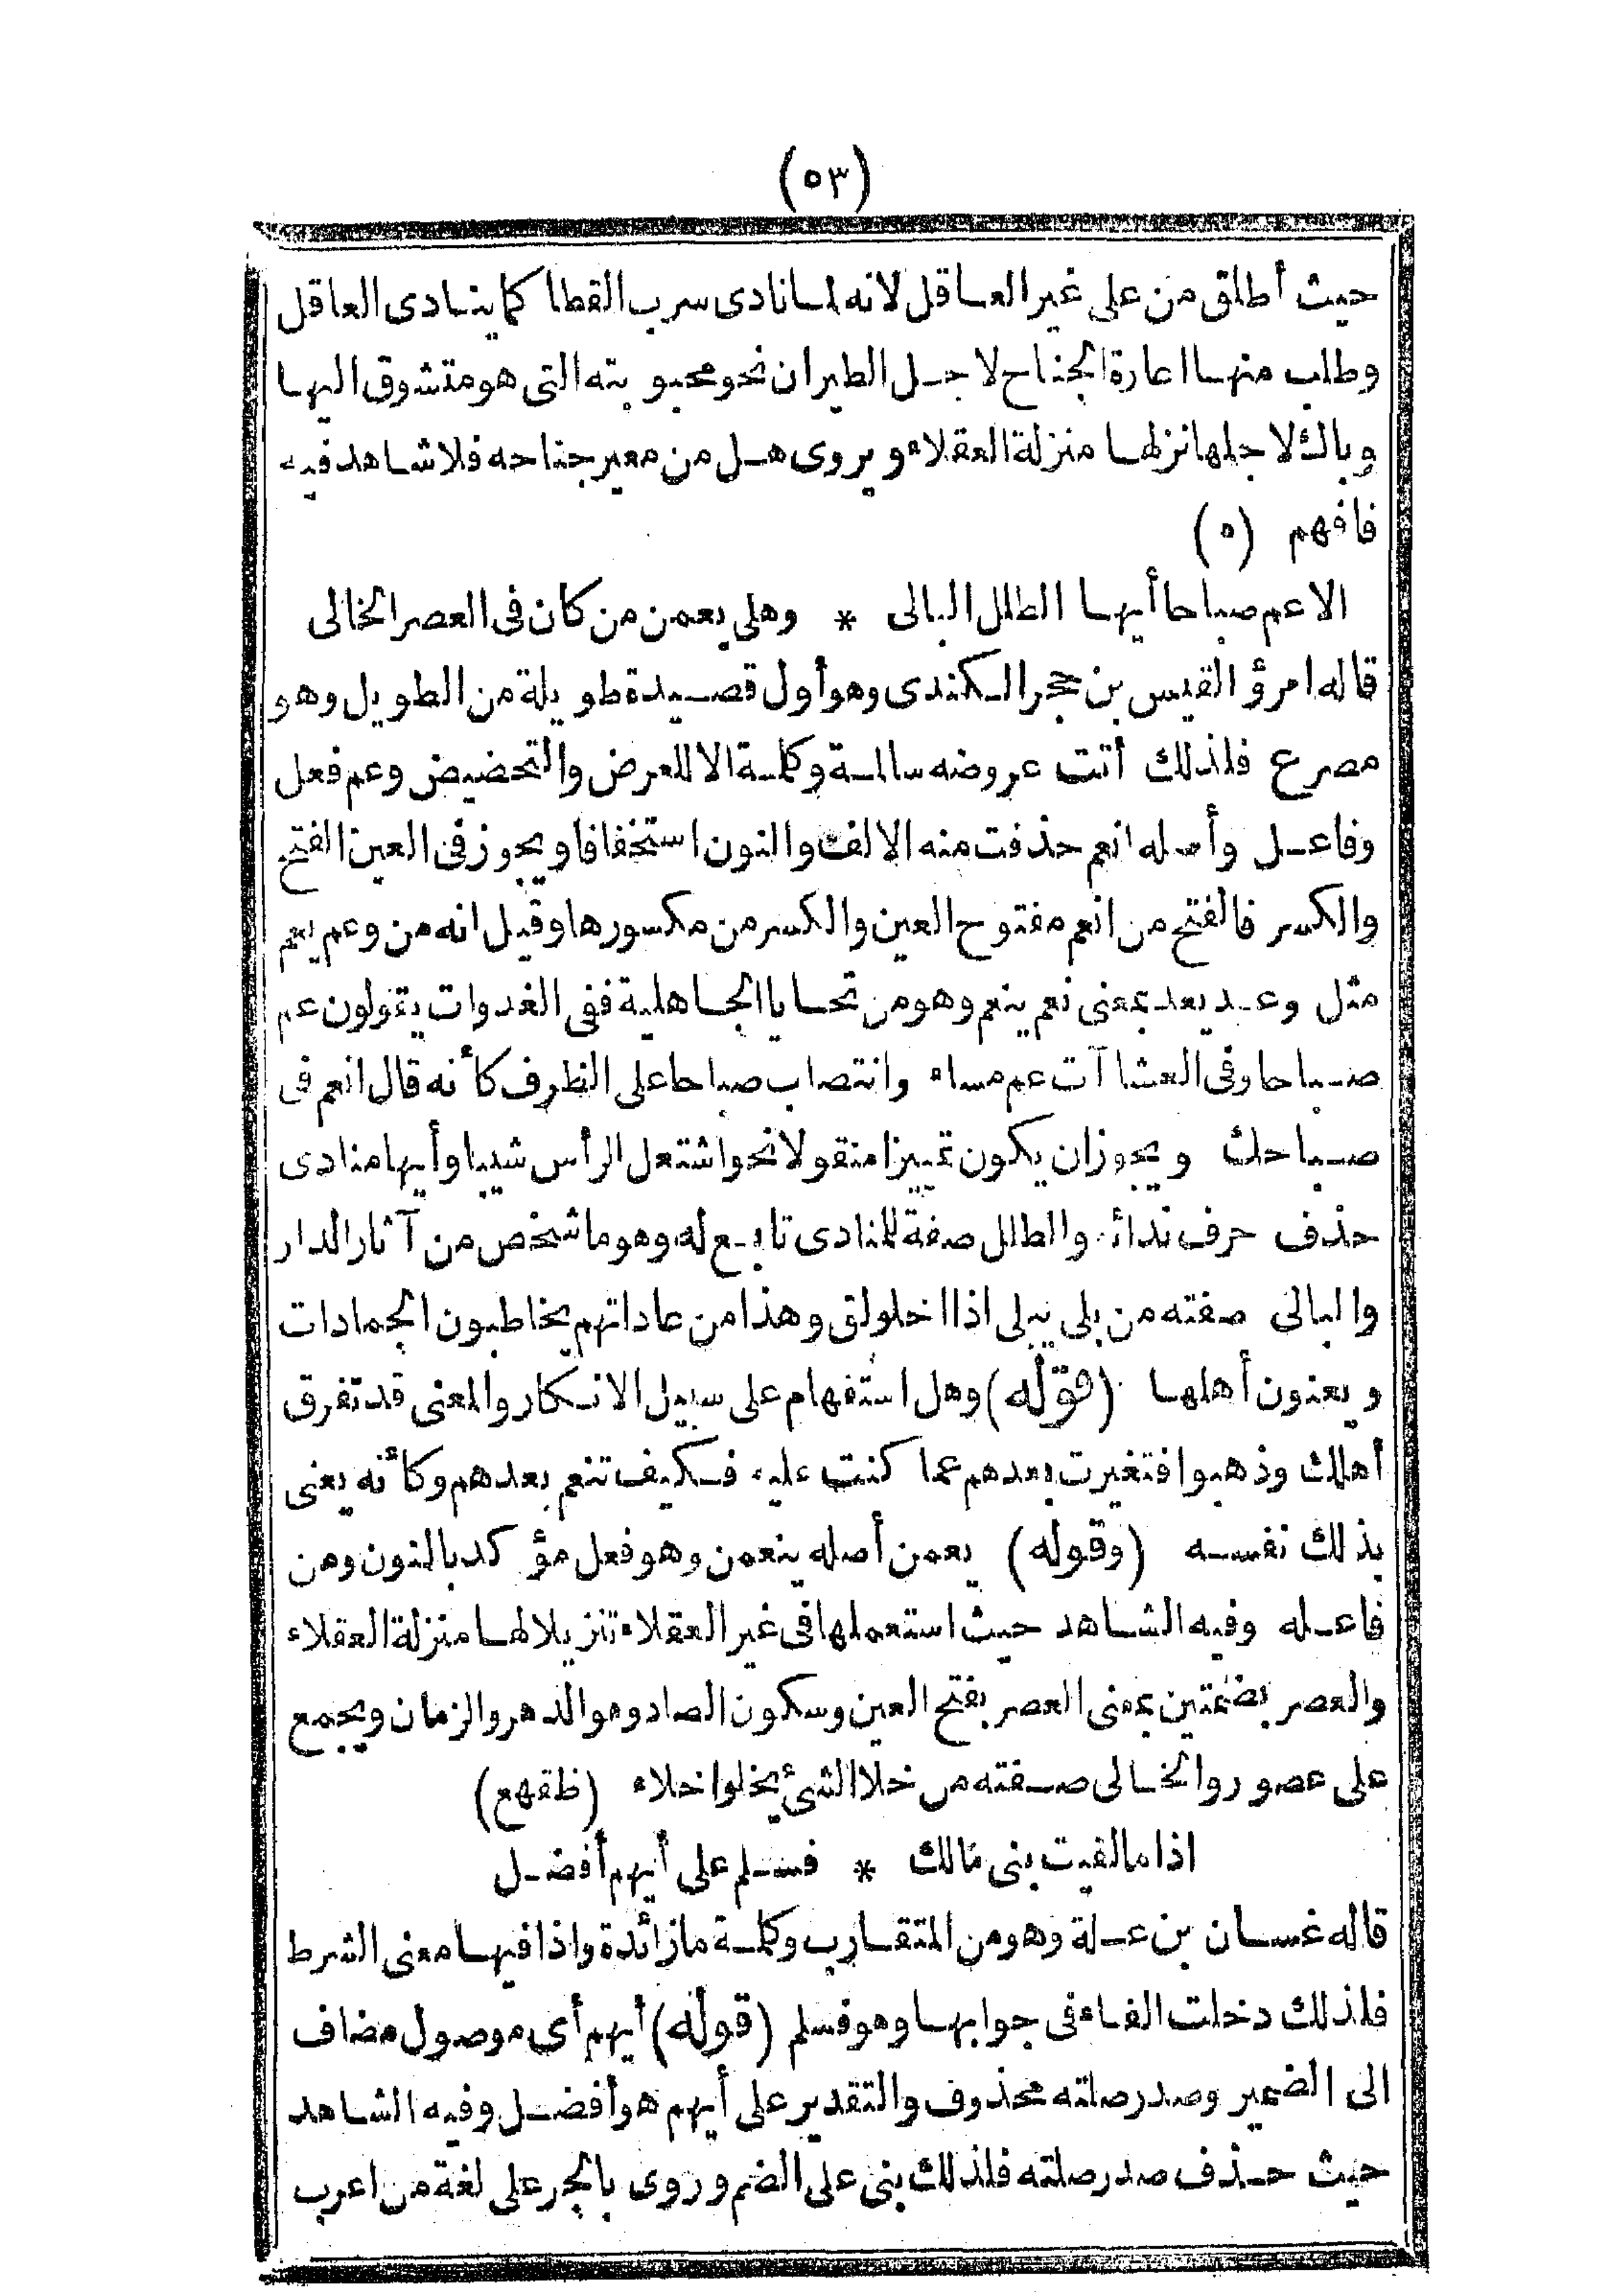 (٥٣)
حيث أطلق من على غير العاقل لانه لما نادى سرب القطا كما ينادى العاقل
وطلب منها اعارة الجناح لاجل الطيران نحو محبوبته التى هو متشوق اليها
وباك لاجلها نزلها منزلة العقلاء ويروى هل من معير جناحه فلا شاهد فيه
فافهم (٥)
الا عم صباحا أيها الطلل البالى * وهل يعمن من كان فى العصر الخالى
قاله امرؤ القيس بن حجر الكندى وهو أول قصيدة طويلة من الطويل وهو
مصرع فلذلك أتت عروضه سالمة وكلمة الا للعرض والتحضيض وعم فعل
وفاعل وأصله انعم حذفت منه الالف والنون استخفافا ويجوز فى العين الفتح
والكسر فالفتح من انعم مفتوح العين والكسر من مكسورها وقيل انه من وعم يعم
مثل وعد يعد بمعنى نعم ينعم وهو من تحايا الجاهلية ففى الغدوات يقولون عم
صباحا وفى العشاآت عم مساء وانتصاب صباحا على الظرف كأنه قال انعم فى
صباحك ويجوز ان يكون تمييزا منقولا نحو اشتعل الرأس شيبا وأيها منادى
حذف حرف ندائه والطلل صفة للمنادى تابع له وهو ما شخص من آثار الدار
والبالى صفته من بلى يبلى اذا اخلولق وهذا من عاداتهم يخاطبون الجمادات
ويعنون أهلها (قوله) وهل استفهام على سبيل الانكار والمعنى قد تفرق
أهلك وذهبوا فتغيرت بعدهم عما كنت عليه فكيف تنعم بعدهم وكأنه يعنى
بذلك نفسه (وقوله) يعمن أصله ينعمن وهو فعل مؤكد بالنون ومن
فاعله وفيه الشاهد حيث استعملها فى غير العقلاء تنزيلا لها منزلة العقلاء
والعصر بضمتين بمعنى العصر بفتح العين وسكون الصاد وهو الدهر والزمان ويجمع
على عصور والخالى صفته من خلا الشئ يخلوا خلاء (ظقهع)
اذا ما لقيت بنى مالك * فسلم على أيهم أفضل
قاله غسان بن علة وهو من المتقارب وكلمة ما زائدة واذا فيها معنى الشرط
فلذلك دخلت الفاء فى جوابها وهو فسلم (قوله) أيهم أى موصول مضاف
الى الضمير وصدر صلته محذوف والتقدير على أيهم هو أفضل وفيه الشاهد
حيث حذف صدر صلته فلذلك بنى على الضم وروى بالجر على لغة من اعرب